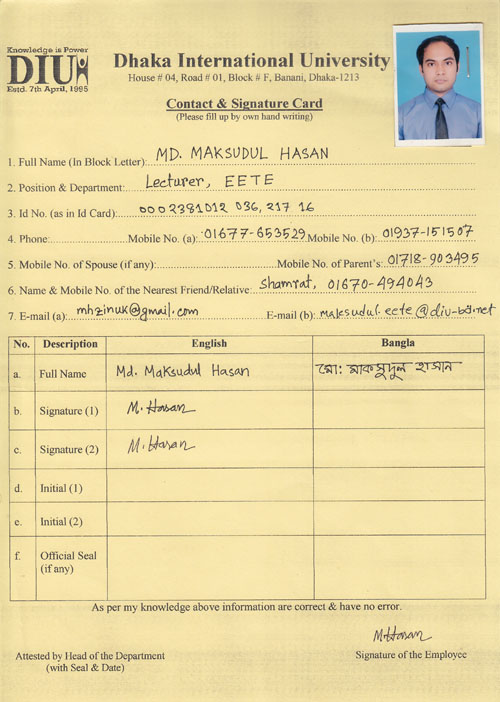 Knowledge is Power
DIU
Estd. 7th April, 1995
Dhaka International University
House # 04, Road # 01, Block # F, Banani, Dhaka-1213
Contact & Signature Card
(Please fill up by own hand writing)
1. Full Name (In Block Letter): MD. MAKSUDUL HASAN
2. Position & Department: Lecturer, EETE
3. Id No. (as in Id Card): 0002381012 036, 217 16
4. Phone: Mobile No. (a): 01677-653529 Mobile No. (b): 01937-151507
5. Mobile No. of Spouse (if any): Mobile No. of Parent's: 01718-903495
6. Name & Mobile No. of the Nearest Friend/Relative: Shamrat, 01670-494043
7. E-mail (a): mhzinuk@gmail.com E-mail (b): maksudul.eete@diu-bd.net
No. Description English Bangla
a. Full Name Md. Maksudul Hasan মো: মাকসুদুল হাসান
b. Signature (1) M.Hasan
c. Signature (2) M.Hasan
d. Initial (1)
e. Initial (2)
f. Official Seal
(if any)
As per my knowledge above information are correct & have no error.
M.Hasan
Attested by Head of the Department Signature of the Employee
(with Seal & Date)